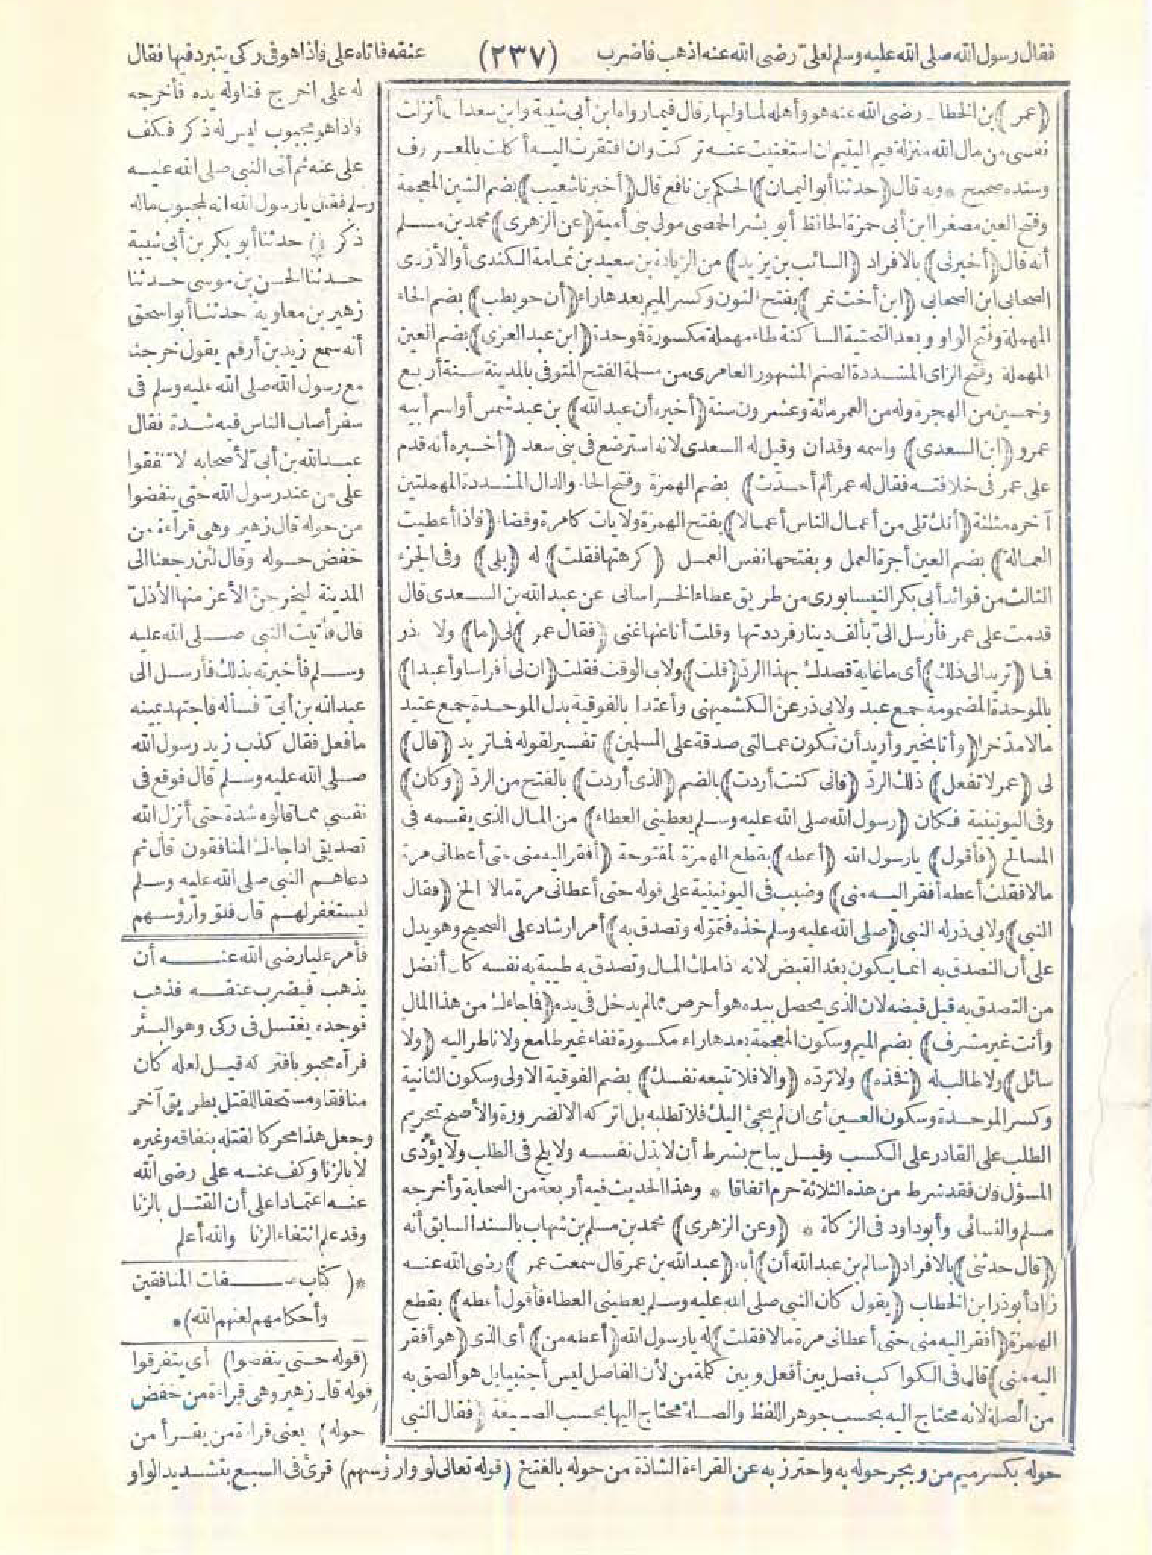 فقال رسول الله صلى الله عليه وسلم لعلى رضى الله عنه اذهب فاضرب (٢٣٧) عنقه فاتاه على فاذا هو فى ركى يتبرد فيها فقال
(عمر) بن الخطاب رضى الله عنه هو وأهله لما وليها قال فيما رواه ابن أبى شيبة وابن سعد انى أنزلت
نفسى من مال الله منزلة قيم اليتيم ان استغنيت عنه تركت وان افتقرت اليه أكلت بالمعروف
وسنده صحيح * وبه قال (حدثنا أبو اليمان) الحكم بن نافع قال (أخبرنا شعيب) بضم الشين المعجمة
وفتح العين مصغرا ابن أبى حمزة الحافظ أبو بشر الحمصى مولى بنى أمية (عن الزهرى) محمد بن مسلم
أنه قال (أخبرنى) بالافراد (السائب بن يزيد) من الزيادة بن سعيد بن ثمامة الكندى أو الأزدى
الصحابى ابن الصحابى (ابن أخت نمر) بفتح النون وكسر الميم بعدها راء (أن حويطب) بضم الحاء
المهملة وفتح الواو وبعد التحتية الساكنة طاء مهملة مكسورة فوحدة (ابن عبد العزى) بضم العين
المهملة وفتح الزاى المشددة الصنم المشهور العامرى من مسلمة الفتح المتوفى بالمدينة سنة أربع
وخمسين من الهجرة وله من العمر مائة وعشرون سنة (أخبره أن عبد الله) بن عبد شمس أو اسم أبيه
عمرو (ابن السعدى) واسمه وقدان وقيل له السعدى لانه استرضع فى بنى سعد (أخبره أنه قدم
على عمر فى خلافته فقال له عمر ألم أحدث) بضم الهمزة وفتح الحاء والدال المشددة المهملتين
آخره مثلثة (أنك تلى من أعمال الناس أعمالا) بفتح الهمزة ولايات كامرة وقضاء (فاذا أعطيت
العمالة) بضم العين أجرة العمل وبفتحها نفس العمل (كرهتها فقلت) له (بلى) وفى الجزء
الثالث من فوائد أبى بكر النيسابورى من طريق عطاء الخراسانى عن عبد الله بن السعدى قال
قدمت على عمر فأرسل الىّ بألف دينار فرددتها وقلت أنا عنها غنى (فقال عمر) لى (ما) ولا بى ذر
فا (تريد الى ذلك) أى ما غاية قصدك بهذا الرد (قلت) ولابى الوقت فقلت (ان لى أفراسا وأعبدا)
بالموحدة المضمومة جمع عبد ولابى ذر عن الكشميهنى وأعتدا بالفوقية بدل الموحدة جمع عتيد
مالا مدخرا (وأنا بخير وأريد أن تكون عمالتى صدقة على المسلمين) تفسير لقوله فا تريد (قال)
لى (عمر لا تفعل) ذلك الرد (فانى كنت أردت) بالضم (الذى أردت) بالفتح من الرد (وكان)
وفى اليونينية فكان (رسول الله صلى الله عليه وسلم يعطينى العطاء) من المال الذى يقسمه فى
المصالح (فأقول) يا رسول الله (أعطه) بقطع الهمزة المفتوحة (أفقر اليه منى حتى أعطانى مرة
مالا فقلت أعطه أفقر اليه منى) وضبب فى اليونينية على قوله حتى أعطانى مرة مالا الخ (فقال
النبى) ولابى ذر له النبى (صلى الله عليه وسلم خذه فتموله وتصدق به) أمر ارشاد على الصحيح وهو يدل
على أن التصدق به انما يكون بعد القبض لانه اذا ملك المال وتصدق به طيبة به نفسه كان أفضل
من التصدق به قبل قبضه لان الذى يحصل بيده هو أحرص مما لم يدخل فى يده (فاجاءك من هذا المال
وأنت غير مشرف) بضم الميم وسكون المعجمة بعدها راء مكسورة ففاء غير طامع ولا ناظر اليه (ولا
سائل) ولا طالب له (فخذه) ولا ترده (والا فلا تتبعه نفسك) بضم الفوقية الاولى وسكون الثانية
وكسر الموحدة وسكون العين أى ان لم يجئ اليك فلا تطلبه بل اتركه الا لضرورة والأصح تحريم
الطلب على القادر على الكسب وقيل يباح بشرط أن لا يذل نفسه ولا يلح فى الطلب ولا يؤذى
المسؤل فان فقد شرط من هذه الثلاثة حرم اتفاقا * وهذا الحديث فيه أربعة من الصحابة وأخرجه
مسلم والنسائى وأبو داود فى الزكاة * (وعن الزهرى) محمد بن مسلم بن شهاب بالسند السابق أنه
(قال حدثنى) بالافراد (سالم بن عبد الله أن) أباه (عبد الله بن عمر قال سمعت عمر) رضى الله عنه
زاد أبو ذر ابن الخطاب (يقول كان النبى صلى الله عليه وسلم يعطينى العطاء فأقول أعطه) بقطع
الهمزة (أفقر اليه منى حتى أعطانى مرة مالا فقلت) له يا رسول الله (أعطه من) أى الذى (هو أفقر
اليه منى) قال فى الكواكب فصل بين أفعل وبين كلمة من لأن الفاصل ليس أجنبيا بل هو ألصق به
من الصلة لانه محتاج اليه بحسب جوهر اللفظ والصلة محتاج اليها بحسب الصيغة (فقال النبى
له على اخرج فناوله يده فأخرجه
فاذا هو مجبوب ليس له ذكر فكف
على عنه ثم أتى النبى صلى الله عليه
وسلم فقال يا رسول الله انه لمجبوب ماله
ذكر حدثنا أبو بكر بن أبى شيبة
حدثنا الحسن بن موسى حدثنا
زهير بن معاوية حدثنا أبو اسحق
أنه سمع زيد بن أرقم يقول خرجنا
مع رسول الله صلى الله عليه وسلم فى
سفر أصاب الناس فيه شدة فقال
عبد الله بن أبىّ لأصحابه لا تنفقوا
على من عند رسول الله حتى ينفضوا
من حوله قال زهير وهى قراءة من
خفض حوله وقال لئن رجعنا الى
المدينة ليخرجن الأعز منها الأذل
قال فأتيت النبى صلى الله عليه
وسلم فأخبرته بذلك فأرسل الى
عبد الله بن أبىّ فسأله فاجتهد يمينه
ما فعل فقال كذب زيد رسول الله
صلى الله عليه وسلم قال فوقع فى
نفسى مما قالوه شدة حتى أنزل الله
تصديقى اذا جاءك المنافقون قال ثم
دعاهم النبى صلى الله عليه وسلم
ليستغفر لهم قال فلووا رؤسهم
فأمر عليا رضى الله عنه أن
يذهب فيضرب عنقه فذهب
فوجده يغتسل فى ركى وهو البئر
فرآه مجبوبا فتركه قيل لعله كان
منافقا ومستحقا للقتل بطريق آخر
وجعل هذا محركا لقتله بنفاقه وغيره
لا بالزنا وكف عنه على رضى الله
عنه اعتمادا على أن القتل بالزنا
وقد علم انتفاء الزنا والله أعلم
*(كتاب صفات المنافقين
وأحكامهم لعنهم الله)*
(قوله حتى ينفضوا) أى يتفرقوا
قوله قال زهير وهى قراءة من خفض
حوله) يعنى قراءة من يقرأ من
حوله بكسر ميم من وبجر حوله به واحترز به عن القراءة الشاذة من حوله بالفتح (قوله تعالى لووا رؤسهم) قرئ فى السبع بتشديد الواو